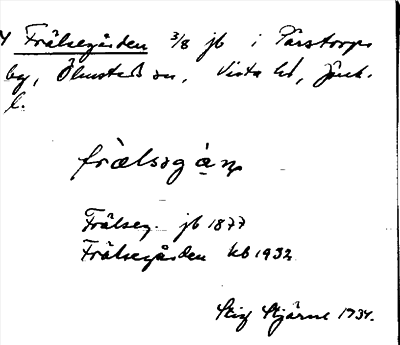 Frälsegården 3/8 jb i Parstorps
by, Ölmstad sn, Vista hd, Jönk.
l.
frälsəgán
Frälseg. jb 1877
Frälsegården kb 1932
Stig Stjärne 1934.